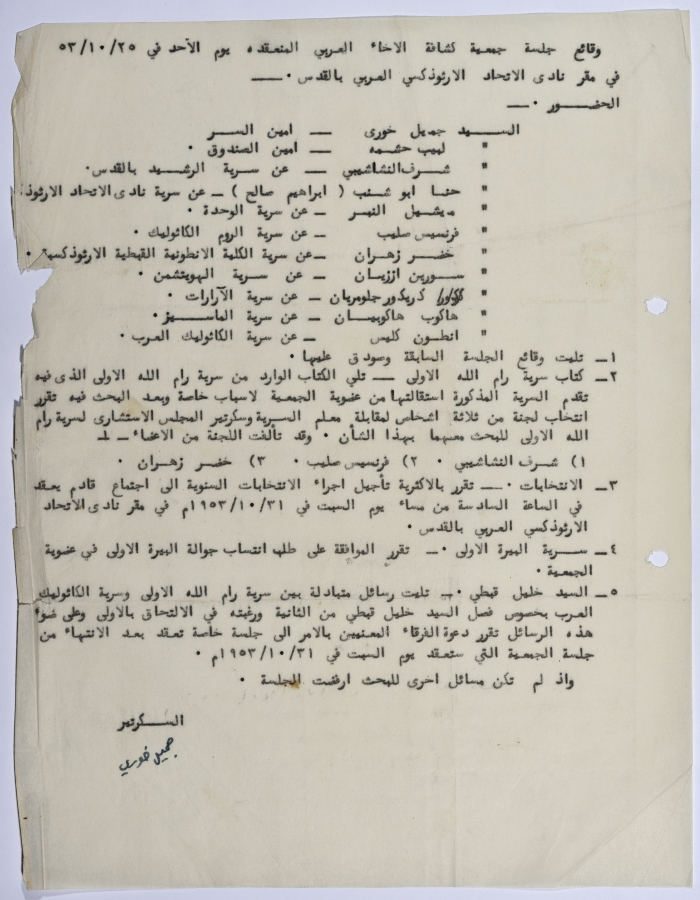 وقائع جلسة جمعية كشافة الاخاء العربي المنعقده يوم الأحد في ٥٣/١٠/٢٥
في مقر نادى الاتحاد الارثوذكسي العربي بالقدس ٠ــ
الحضـــور ٠ــ
الســيد جميل خورى ــ امين الســر
" لبيب حشمه ــ امين الصندوق ٠
" شــرف النشاشيبي ــ عن سرية الرشــيد بالقدس٠
" حنــا ابو شــنب ( ابراهيم صالح ) ــ عن سرية نادى الاتحاد الارثوذ
" ميشــيل النبــر ــ عن سرية الوحدة ٠
" فرنسيس صليب ــ عن سرية الروم الكاثوليك ٠
" خضــر زهــران ــ عن سرية الكلية الانطونية القبطية الارثوذكسية ٠
" ســورين اززيــان ــ عن سرية الهويتشمن ٠
" كريكور جلومريان ــ عن سرية الآرارات ٠
" هاكوب هاكوبيــان ــ عن سرية الماســيز ٠
" انطــون كلبس ــ عن سرية الكاثوليك العرب٠
١ــ تليت وقائع الجلسة السابقة وصودق عليها ٠
٢ــ كتاب سرية رام الله الاولى ــ تلي الكتاب الوارد من سرية رام الله الاولى الذى فيه
تقدم السرية المذكورة استقالتها من عضوية الجمعية لاسباب خاصة وبعد البحث فيه تقرر
انتخاب لجنة من ثلاثة اشخاص لمقابلة معلم السرية وسكرتير المجلس الاستشارى لسرية رام
الله الاولى للبحث معهما بهذا الشأن ٠ وقد تألفت اللجنة من الاعضاء ــ
١) شــرف النشاشيبي ٠ ٢) فرنسيس صليب ٠ ٣) خضــر زهــران ٠
٣ــ الانتخابات ٠ــ تقرر بالاكثرية تأجيل اجراء الانتخابات السنوية الى اجتماع قادم يعقد
في الساعة السادسة من مساء يوم السبت في ١٩٥٣/١٠/٣١م في مقر نادى الاتحاد
الارثوذكسي العربي بالقدس ٠
٤ــ ســرية البيرة الاولى ٠ــ تقرر الموافقة على طلب انتساب جوالة البيرة الاولى في عضوية
الجمعية ٠
٥ــ السيد خليل قبطي ٠ــ تليت رسائل متبادلة بين سرية رام الله الاولى وسرية الكاثوليك
العرب بخصوص فصل السيد خليل قبطي من الثانية ورغبته في الالتحاق بالاولى وعلى ضوء
هذه الرسائل تقرر دعوة الفرقاء المعنيين بالامر الى جلسة خاصة تعقد بعد الانتهاء من
جلسة الجمعية التي ستعقد يوم السبت في ١٩٥٣/١٠/٣١م ٠
واذ لم تكن مسائل اخرى للبحث ارفضت الجلسة ٠
الســكرتير
جميل خوري